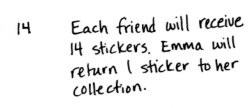 14 Each friend will receive
14 stickers. Emma will
return 1 sticker to her
collection.